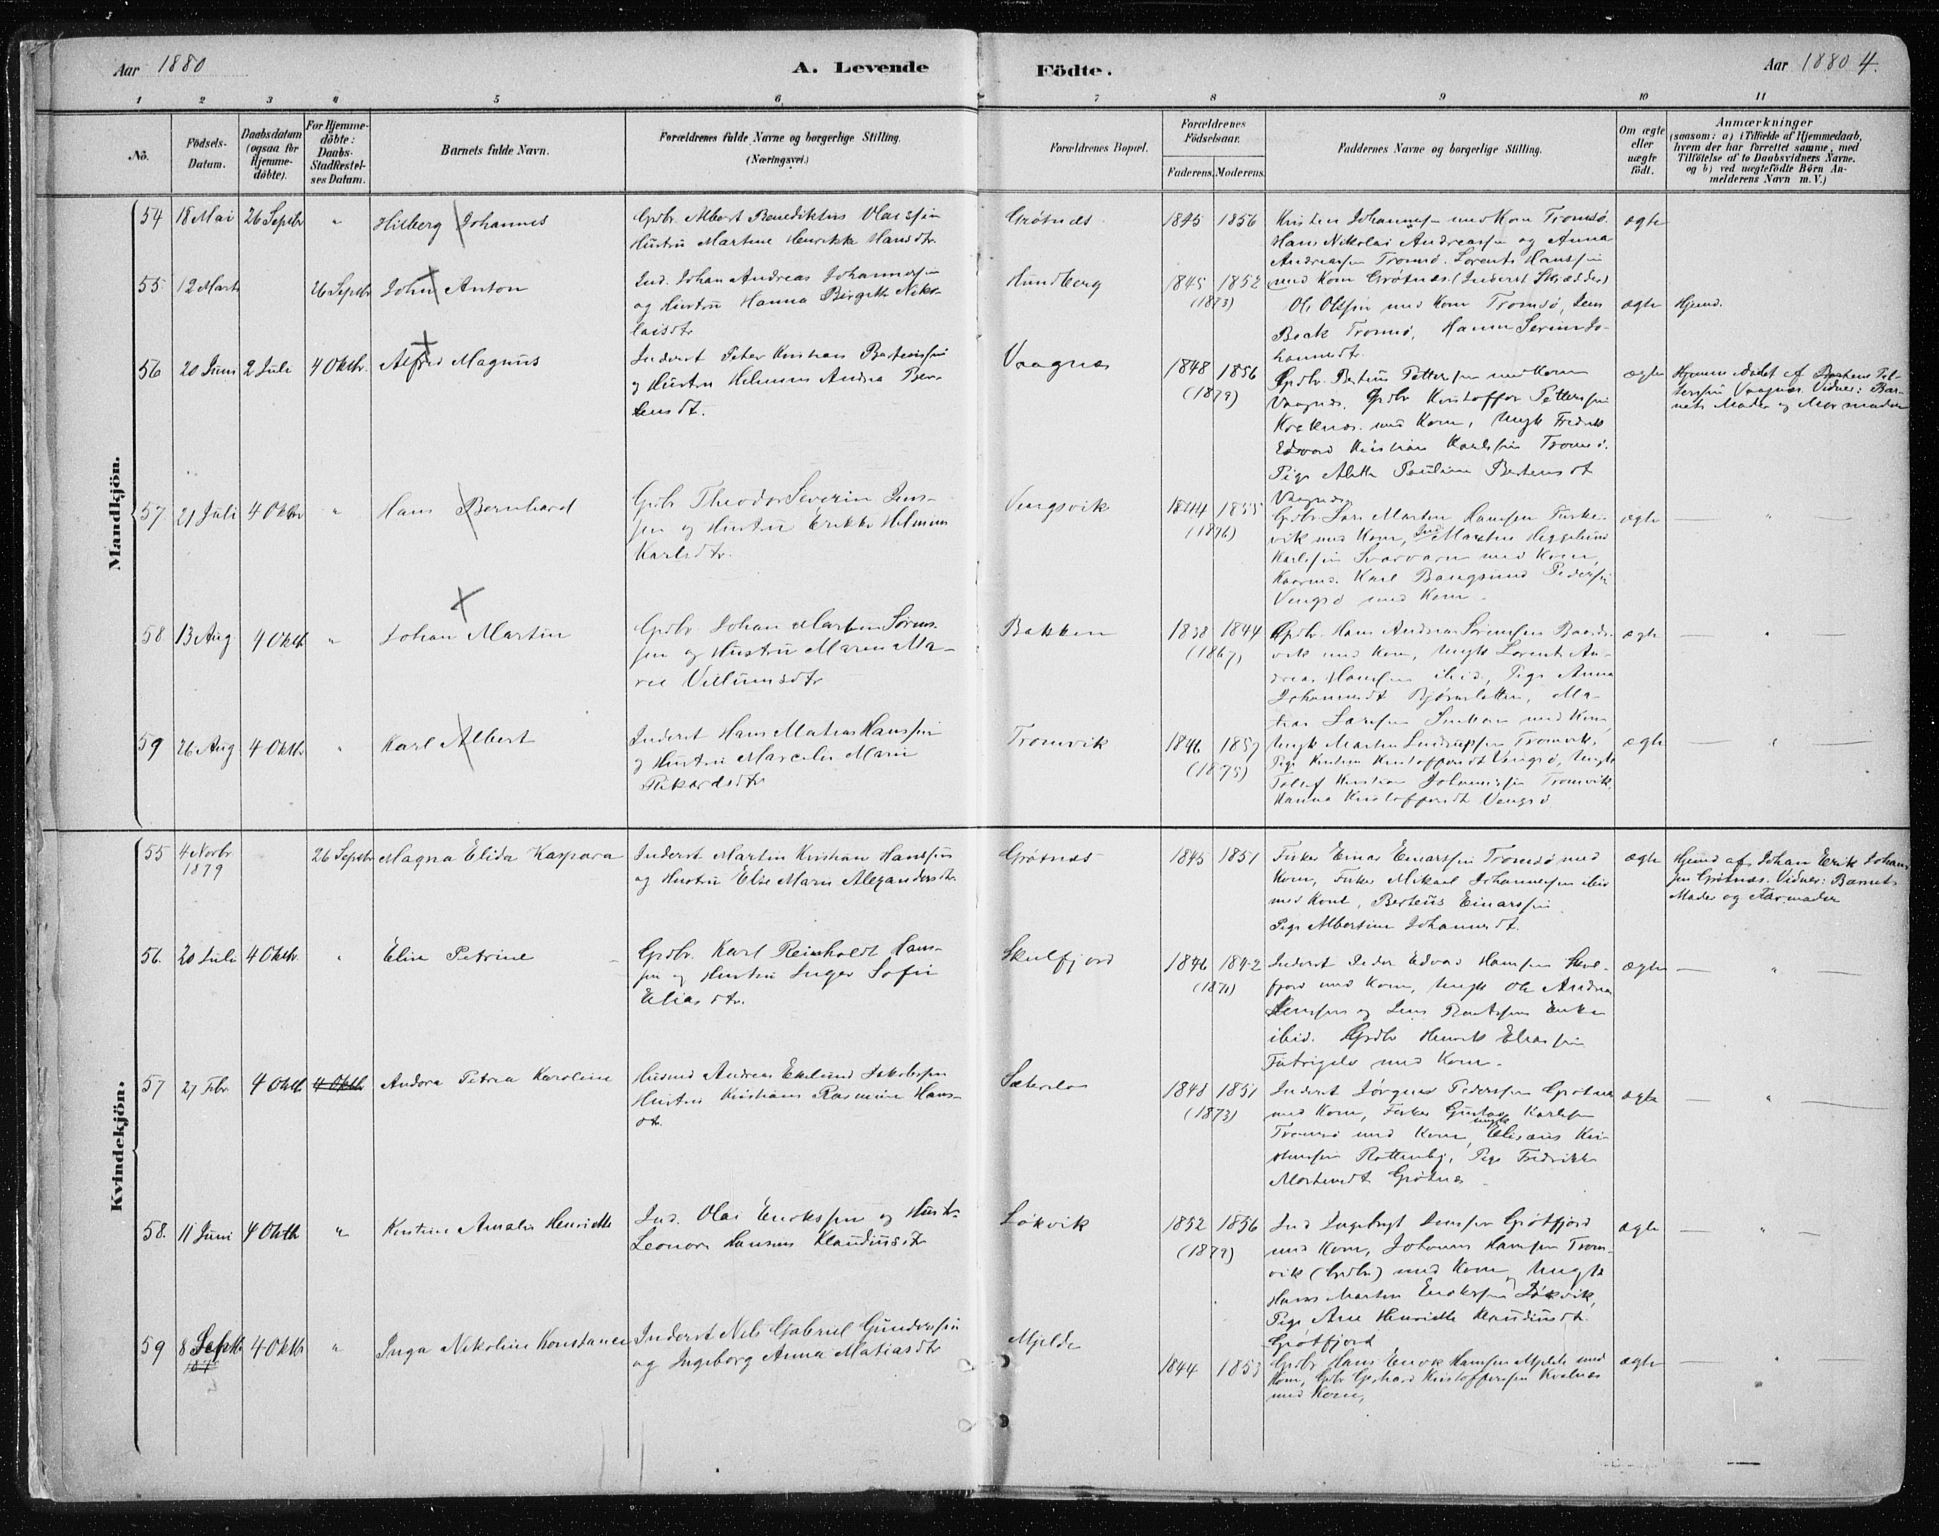 Aar 1880
A. Levende
Födte.
Aar 1880 4.
1 2 3 4 5 6 7 8 9 10 11
No.
Födsels-
Datum.
Daabsdatum
(ogsaa for
Hjemme-
döbte).
For Hjemme-
döbte:
Daabs-
Stadfæstel-
ses Datum.
Barnets fulde Navn.
Forældrenes fulde Navne og borgerlige Stilling.
(Næringsvei.)
Forældrenes Bopæl.
Forældrenes
Födselsaar.
Faderens. Moderens.
Faddernes Navne og borgerlige Stilling.
Om ægte
eller
uægte
født.
Anmærkninger
(saasom: a) i Tilfælde af Hjemmedaab,
hvem der har forrettet samme, med
Tilföielse af to Daabsvidners Navne.
og b) ved uægtefödte Børn An-
melderens Navn m. V.)
Mandkjön.
54 18 Mai 26 Septbr " Hilberg Johannes
Gdbr. Albert Benediktus Olaissen
Hustru Martine Henrikke Hansdtr
Grøtnæs 1845 1856
Kristen Johannessen med Kone Tromsø
Hans Nikolai Andreassen og Anna
Andreassen Tromsø. Lorents Hanssen
med Kone Grøtnæs (Inderst Skrædder)
ægte
55 12 Marts 26 Septbr John Anton
Ind. Johan Andreas Johannessen
og Hustru Hanna Birgitte Niko-
laisdtr
Hundberg 1845 1852
(1873)
Ole Olssen med Kone Tromsø, Jens
Beck Tromsø, Hanna Serine Jo-
hannesdtr.
ægte Hjemd.
56 20 Juni 2 Juli 4 Oktbr. Alfred Magnus
Inderst Peter Kristian Bertenssen
og Hustru Helmine Andrea Ber-
tensdtr.
Vaagnæs 1848 1856
(1879)
Gdbr. Berteus Pettersen med Kone
Vaagnæs. Gdbr Kristoffer Pettersen
med Kone, Ungk Fredrik
Edvard Kristian Karlsen Tromsø.
Pige Aletta Pauline Bertensdt
Vaagnæs
ægte
Hjemmedøbt af Bertens Pet-
tersen Vaagnæs. Vidner: Bar-
nets Moder og Mormoder
57 21 Juli 4 Oktbr " Hans Bernhard
Gdbr Theodor Severin Jens-
sen og Hustru Erikke Helmine
Karlsdtr.
Vengsvik 1844 1855
(1876)
Gdbr Lars Martin Hanssen Fiske-
vik med Kone, Ind Martin Heggelund
Karlssen med Kone
Karl Bangsund Pedersen
Vengsø med Kone.
ægte — " —
58 13 Aug 4 Oktbr " Johan Martin
Gdbr. Johan Martin Sørens-
sen og Hustru Maren Ma-
rie Villumsdtr
Bakken 1838 1844
(1867)
Gdbr. Hans Andreas Sørenssen Baards-
vik med Kone, Ungk Lorents An-
dreas Hanssen ibid, Pige Anna
Johannesdt Bjørnsletten, Ma-
tias Larssen med Kone
ægte — " —
59 26 Aug 4 Oktbr " Karl Albert
Inderst Hans Matias Hanssen
og Hustru Marcelie Marie
Rikardsdtr
Tromvik 1846 1857
(1875)
Ungk Martin Tromvik,
Pige Kristine Kristoffersdt Vengsø, Ungk
Tollef Kristian Johannessen Tromvik,
Hanna Kristoffersdt Vengsø
ægte — " —
Kvindekjön.
55 4 Novbr
1879
26 Septbr Magna Elida Kaspara
Inderst Martin Kristian Hanssen
og Hustru Elie Marie Alexandersdtr.
Grøtnæs 1845 1851
Fisker Einar Einarssen Tromsø med
Kone, Fisker Mikael Johannessen ibid
med Kone, Berteus Einarssen
Pige Albertine Johannesdt.
ægte
Hjemd af Johan Erik Johans-
sen Grøtnæs. Vidner: Barnets
Moder og Farmoder
56. 20 Juli 4 Oktbr. " Elise Petrine
Gdbr. Karl Reinholdt Hans-
sen og Hustru Inger Sofie
Eliasdtr.
Skulfjord 1846 1842
(1871)
Inderst Peder Edvard Hanssen Skul-
fjord med Kone, Ungk Ole Andreas
Jenssen og Jens
ibid. Gdbr Henrik Eliassen
med Kone.
ægte — " —
57 21 Fbr 4 Oktbr 4 Oktb Andora Petrea Karoline
Husmd Andreas Ekelund Jakobssen
Hustru Kristiane Rasmine Hans-
dtr.
1848 1851
(1873)
Inderst Jørgen Pederssen Grøtnæs
med Kone, Fisker Gustav Karlssen
Tromsø med Kone, ungk Elisæus Kri-
stianssen Rottenby, Pige Fredrikke
Mortensdt Grøtnæs
ægte — " —
58. 11 Juni 4 Oktb " Kirstine Amalie Henriette
Ind. Olai Erikssen og Hustr.
Leonore Hansine Klaudiusdtr
Løkvik 1852 1856
(1879)
Ind Ingebrigt Jenssen Grøtfjord
med Kone, Johannes Hanssen Trom-
vik (Gdbr) med Kone, Ungk
Hans Martin Erikssen Løkvik,
Pige Ane Henriette Klaudiusdt.
Grøtfjord
ægte — " —
59 8 Septb 4 Oktb " Inga Nikoline Konstance
Inderst Nils Gabriel Gunderssen
og Ingeborg Anna Matiasdtr
Mjelde 1844 1853
Gdbr Hans Enok Hanssen Mjelde med
Kone, Gdbr Gerhard Kristofferssen Kvalnæs
med Kone,
ægte — " —